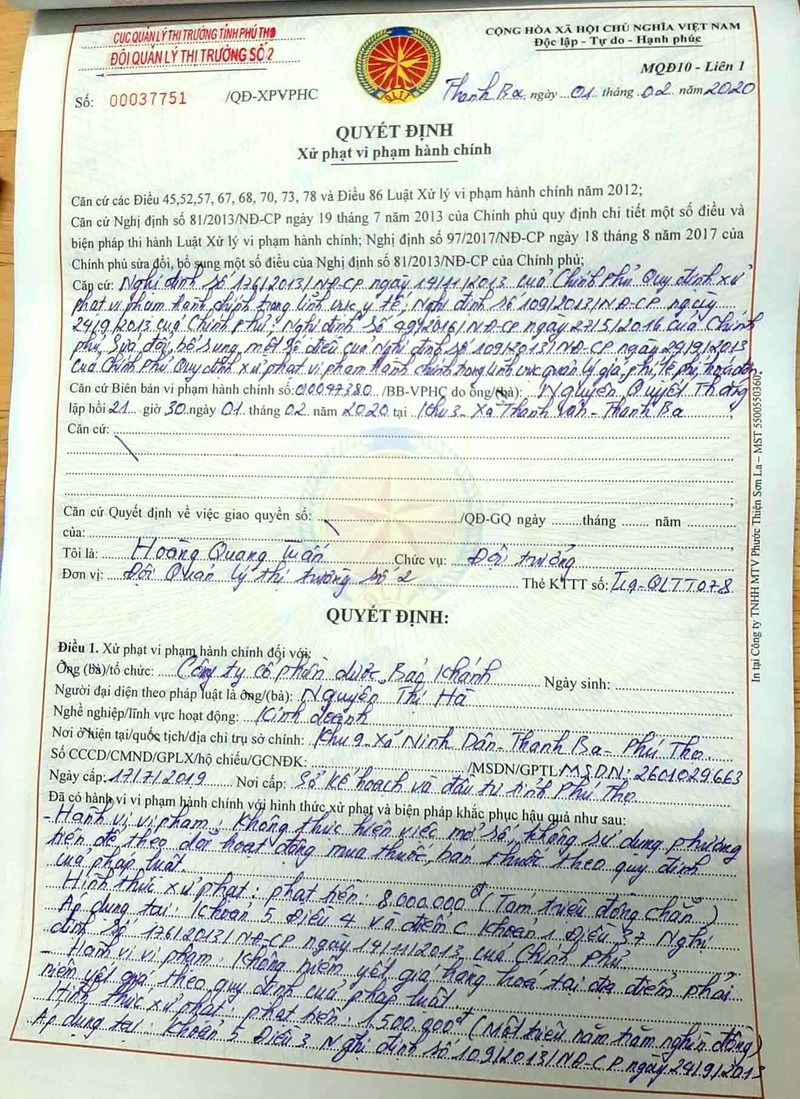 CỤC QUẢN LÝ THỊ TRƯỜNG TỈNH PHÚ THỌ
ĐỘI QUẢN LÝ THỊ TRƯỜNG SỐ 2
CỘNG HÒA XÃ HỘI CHỦ NGHĨA VIỆT NAM
Độc lập - Tự do - Hạnh phúc
MQĐ10 - Liên 1
Số: 00037751 /QĐ-XPVPHC
Thanh Ba, ngày 01 tháng 02 năm 2020
QUYẾT ĐỊNH
Xử phạt vi phạm hành chính
Căn cứ các Điều 45,52,57, 67, 68, 70, 73, 78 và Điều 86 Luật Xử lý vi phạm hành chính năm 2012;
Căn cứ Nghị định số 81/2013/NĐ-CP ngày 19 tháng 7 năm 2013 của Chính phủ quy định chi tiết một số điều và
biện pháp thi hành Luật Xử lý vi phạm hành chính; Nghị định số 97/2017/NĐ-CP ngày 18 tháng 8 năm 2017 của
Chính phủ sửa đổi, bổ sung một số điều của Nghị định số 81/2013/NĐ-CP của Chính phủ;
Căn cứ: Nghị định số 176/2013/NĐ-CP ngày 14/11/2013 của Chính Phủ Quy định xử
phạt vi phạm hành chính trong lĩnh vực y tế; Nghị định số 109/2013/NĐ-CP ngày
24/9/2013 của Chính Phủ; Nghị định số 49/2016/NĐ-CP ngày 27/5/2016 của Chính
phủ sửa đổi, bổ sung một số điều của Nghị định số 109/2013/NĐ-CP ngày 24/9/2013
của Chính Phủ Quy định xử phạt vi phạm hành chính trong lĩnh vực quản lý giá, phí, lệ phí, hóa đơn
Căn cứ Biên bản vi phạm hành chính số: 00097380 /BB-VPHC do ông/(bà): Nguyễn Quyết Thắng
lập hồi 21 giờ 30 ngày 01 tháng 02 năm 2020 tại Khu 3 - Xã Thanh Vân - Thanh Ba
Căn cứ:
Căn cứ Quyết định về việc giao quyền số: /QĐ-GQ ngày tháng năm
của:
Tôi là: Hoàng Quang Tuấn Chức vụ: Đội trưởng
Đơn vị: Đội Quản lý thị trường số 2 Thẻ KTTT số: I19-QLTT078
QUYẾT ĐỊNH:
Điều 1. Xử phạt vi phạm hành chính đối với:
Ông (bà)/tổ chức: Công ty cổ phần dược Bảo Khánh Ngày sinh:
Người đại diện theo pháp luật là ông/(bà): Nguyễn Thị Hà
Nghề nghiệp/lĩnh vực hoạt động: Kinh doanh
Nơi ở hiện tại/quốc tịch/địa chỉ trụ sở chính: Khu 9 - Xã Ninh Dân - Thanh Ba - Phú Thọ
Số CCCD/CMND/GPLX/hộ chiếu/GCNĐK: /MSDN/GPTL MSDN: 2601029663
Ngày cấp: 17/7/2019 Nơi cấp: Sở Kế hoạch và đầu tư tỉnh Phú Thọ
Đã có hành vi vi phạm hành chính với hình thức xử phạt và biện pháp khắc phục hậu quả như sau:
- Hành vi vi phạm: Không thực hiện việc mở sổ, không sử dụng phương
tiện để theo dõi hoạt động mua thuốc, bán thuốc theo quy định
của pháp luật.
Hình thức xử phạt: phạt tiền: 8.000.000đ (Tám triệu đồng chẵn)
Áp dụng tại: Khoản 5 Điều 4 và điểm c Khoản 1 Điều 37 Nghị
định số 176/2013/NĐ-CP ngày 14/11/2013 của Chính Phủ
- Hành vi vi phạm: Không niêm yết giá hàng hoá tại địa điểm phải
niêm yết giá theo quy định của pháp luật
Hình thức xử phạt: phạt tiền: 1.500.000đ (Một triệu năm trăm nghìn đồng)
Áp dụng tại: Khoản 5 Điều 3 Nghị định số 109/2013/NĐ-CP ngày 24/9/2013
In tại Công ty TNHH MTV Phước Thiện Sơn La – MST 5500550360